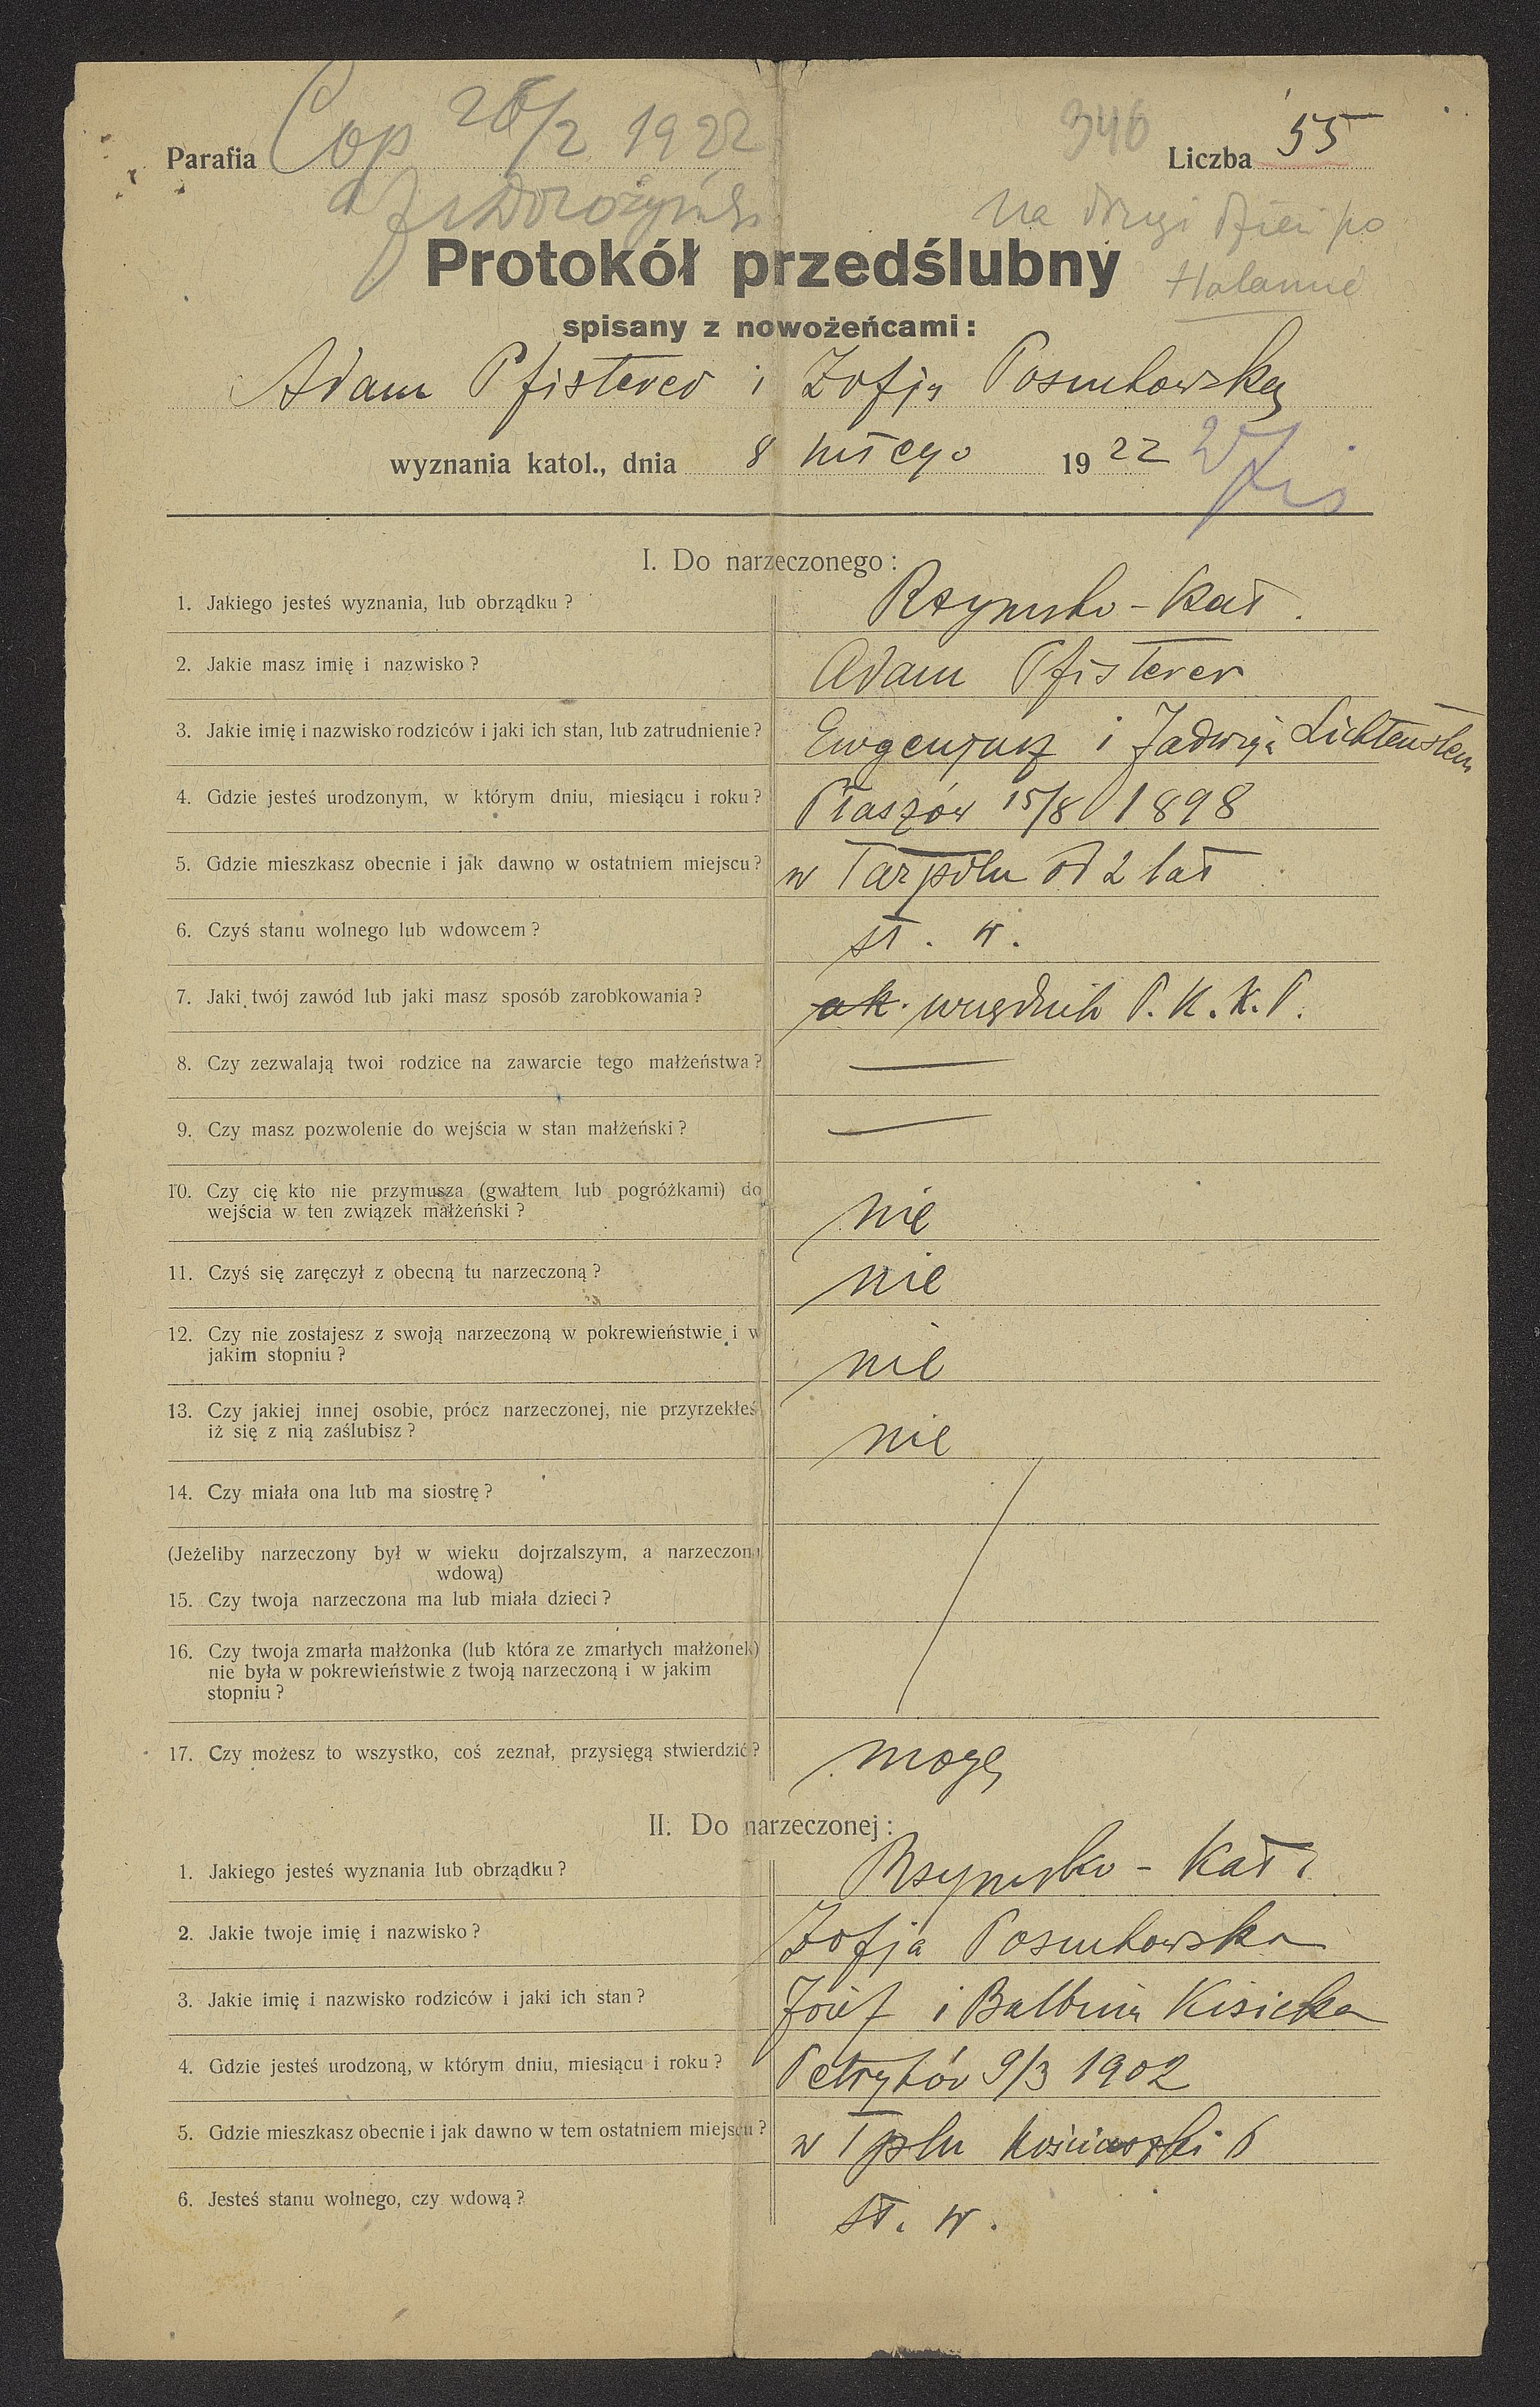 Parafia Cop 26/2 1922
346 Liczba 55
na drugi dzień po
Protokół przedślubny
spisany z nowożeńcami:
Adam Pfisterer i Zofją
wyznania katol., dnia 8 lutego 1922
I. Do narzeczonego:
1. Jakiego jesteś wyznania, lub obrządku? Rzymsko-kat.
2. Jakie masz imię i nazwisko? Adam Pfisterer
3. Jakie imię i nazwisko rodziców i jaki ich stan, lub zatrudnienie? Ewgenjusz i Jadwiga Lichtenstein
4. Gdzie jesteś urodzonym, w którym dniu, miesiącu i roku? Płaszów 15/8 1898
5. Gdzie mieszkasz obecnie i jak dawno w ostatniem miejscu? w Tarpolu od 2 lat
6. Czyś stanu wolnego lub wdowcem? st. w.
7. Jaki twój zawód lub jaki masz sposób zarobkowania? urzędnik P.K.K.P.
8. Czy zezwalają twoi rodzice na zawarcie tego małżeństwa? —
9. Czy masz pozwolenie do wejścia w stan małżeński? —
10. Czy cię kto nie przymusza (gwałtem lub pogróżkami) do
wejścia w ten związek małżeński? nie
11. Czyś się zaręczył z obecną tu narzeczoną? nie
12. Czy nie zostajesz z swoją narzeczoną w pokrewieństwie i w
jakim stopniu? nie
13. Czy jakiej innej osobie, prócz narzeczonej, nie przyrzekłeś
iż się z nią zaślubisz? nie
14. Czy miała ona lub ma siostrę?
(Jeżeliby narzeczony był w wieku dojrzalszym, a narzeczona
wdową)
15. Czy twoja narzeczona ma lub miała dzieci?
16. Czy twoja zmarła małżonka (lub która ze zmarłych małżonek)
nie była w pokrewieństwie z twoją narzeczoną i w jakim
stopniu?
17. Czy możesz to wszystko, coś zeznał, przysięgą stwierdzić? mogę
II. Do narzeczonej:
1. Jakiego jesteś wyznania lub obrządku? Rzymsko-kat.
2. Jakie twoje imię i nazwisko? Zofja
3. Jakie imię i nazwisko rodziców i jaki ich stan? Józef i Balbina Kisicka
4. Gdzie jesteś urodzoną, w którym dniu, miesiącu i roku? 9/3 1902
5. Gdzie mieszkasz obecnie i jak dawno w tem ostatniem miejscu? w Tplu Kościuszki 6
6. Jesteś stanu wolnego, czy wdową? st. w.